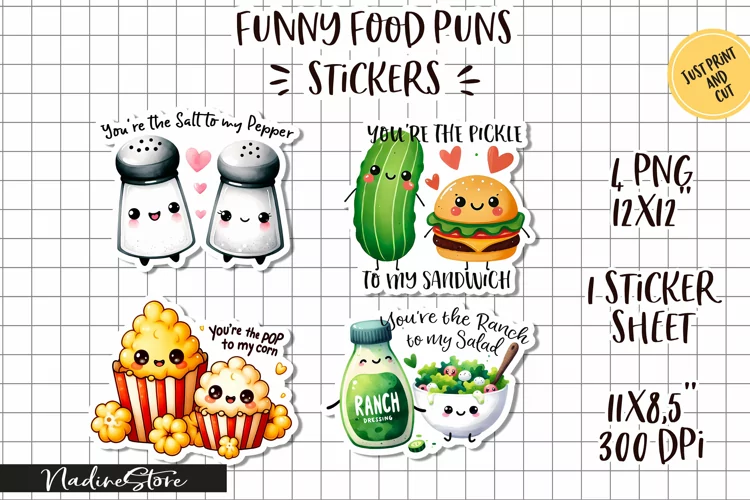 FUNNY FOOD PUNS
STICKERS
JUST PRINT
AND
CUT
You're the Salt to my Pepper
YOU'RE THE PICKLE
TO MY SANDWICH
4 PNG
12X12"
1 STICKER
SHEET
11X8,5"
300 DPI
You're the POP
to my corn
You're the Ranch
to my Salad
RANCH
DRESSING
NadineStore